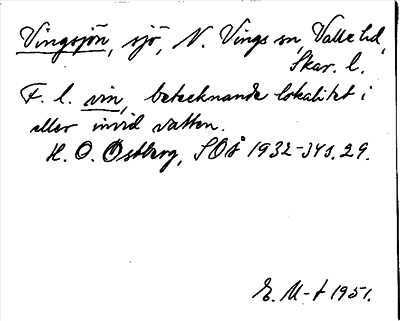 Vingsjön, sjö, N. Vings sn, Valle hd,
Skar. l.
F. l. vin, betecknande lokalitet i
eller invid vatten.
H. O. Östberg, SOÅ 1932-34 s. 29.
E. M-t 1951.